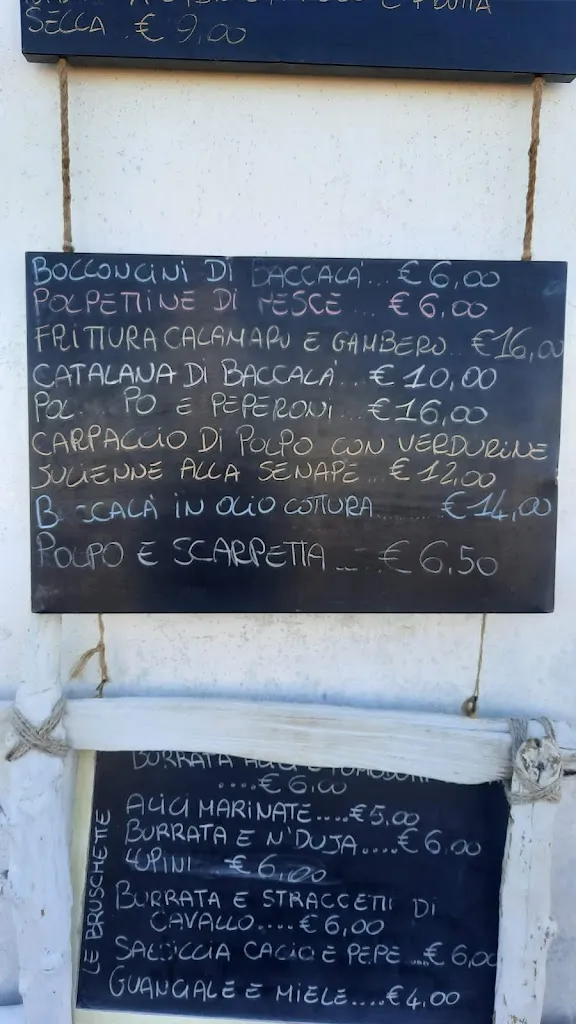 SECCA . € 9,00
BOCCONCINI DI BACCALÀ... € 6,00
POLPETTINE DI PESCE ... € 6,00
FRITTURA CALAMARO E GAMBERO.. €16,00
CATALANA DI BACCALÀ.. € 10,00
E PEPERONI... €16,00
CARPACCIO DI POLPO CON VERDURINE
JULIENNE ALLA SENAPE... € 12,00
IN OLIO COTTURA........ €14,00
POLPO E SCARPETTA..... € 6,50
LE BRUSCHETTE
BURRATA
....€ 6,00
ALICI MARINATE....€5,00
BURRATA E N'DUJA....€ 6,00
LUPINI € 6,00
BURRATA E STRACCETTI DI
CAVALLO....€ 6,00
SALSICCIA CACIO E PEPE...€ 6,00
GUANCIALE E MIELE....€ 4,00